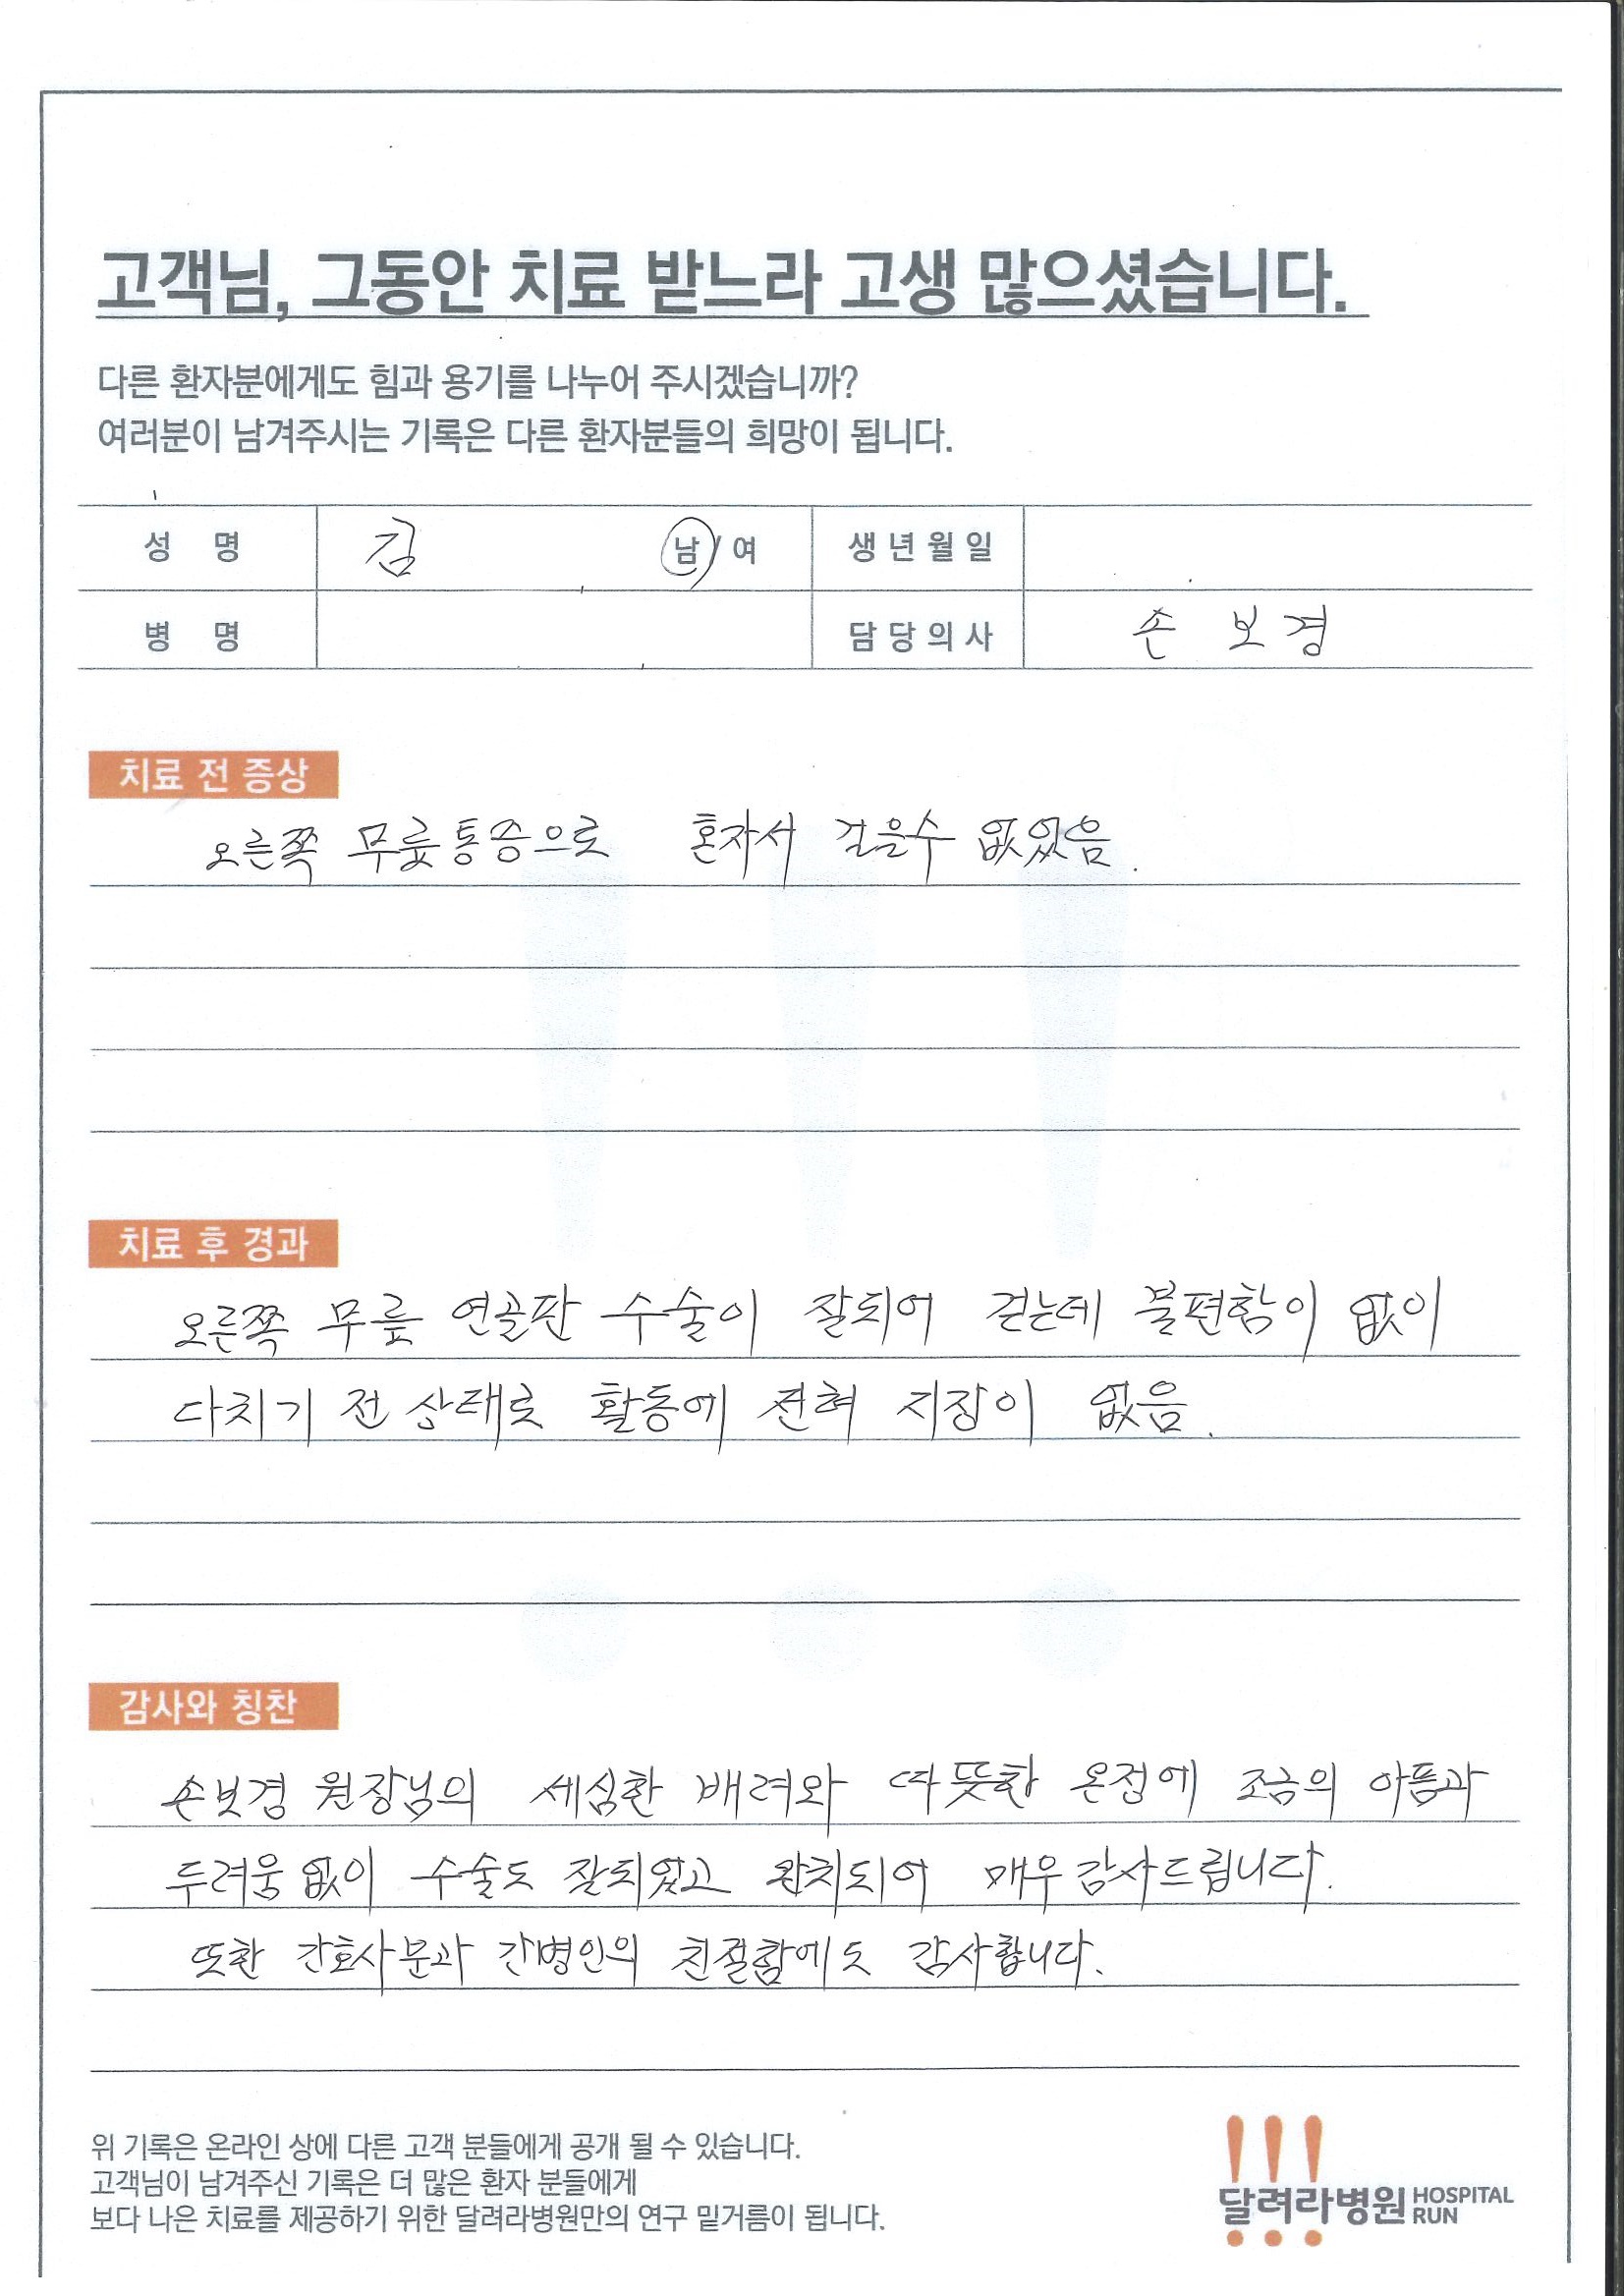 고객님, 그동안 치료 받느라 고생 많으셨습니다.
다른 환자분에게도 힘과 용기를 나누어 주시겠습니까?
여러분이 남겨주시는 기록은 다른 환자분들의 희망이 됩니다.
성 명 김 남/여 생년월일
병 명 담당의사 손 보경
치료 전 증상
오른쪽 무릎통증으로 혼자서 걸을수 없었음.
치료 후 경과
오른쪽 무릎 연골판 수술이 잘되어 걷는데 불편함이 없이
다치기 전 상태로 활동에 전혀 지장이 없음.
감사와 칭찬
손보경 원장님의 세심한 배려와 따뜻한 온정에 조금의 아픔과
두려움 없이 수술도 잘되었고 완치되어 매우 감사드립니다.
또한 간호사분과 간병인의 친절함에도 감사합니다.
위 기록은 온라인 상에 다른 고객 분들에게 공개 될 수 있습니다.
고객님이 남겨주신 기록은 더 많은 환자 분들에게
보다 나은 치료를 제공하기 위한 달려라병원만의 연구 밑거름이 됩니다.
달려라병원 HOSPITAL RUN